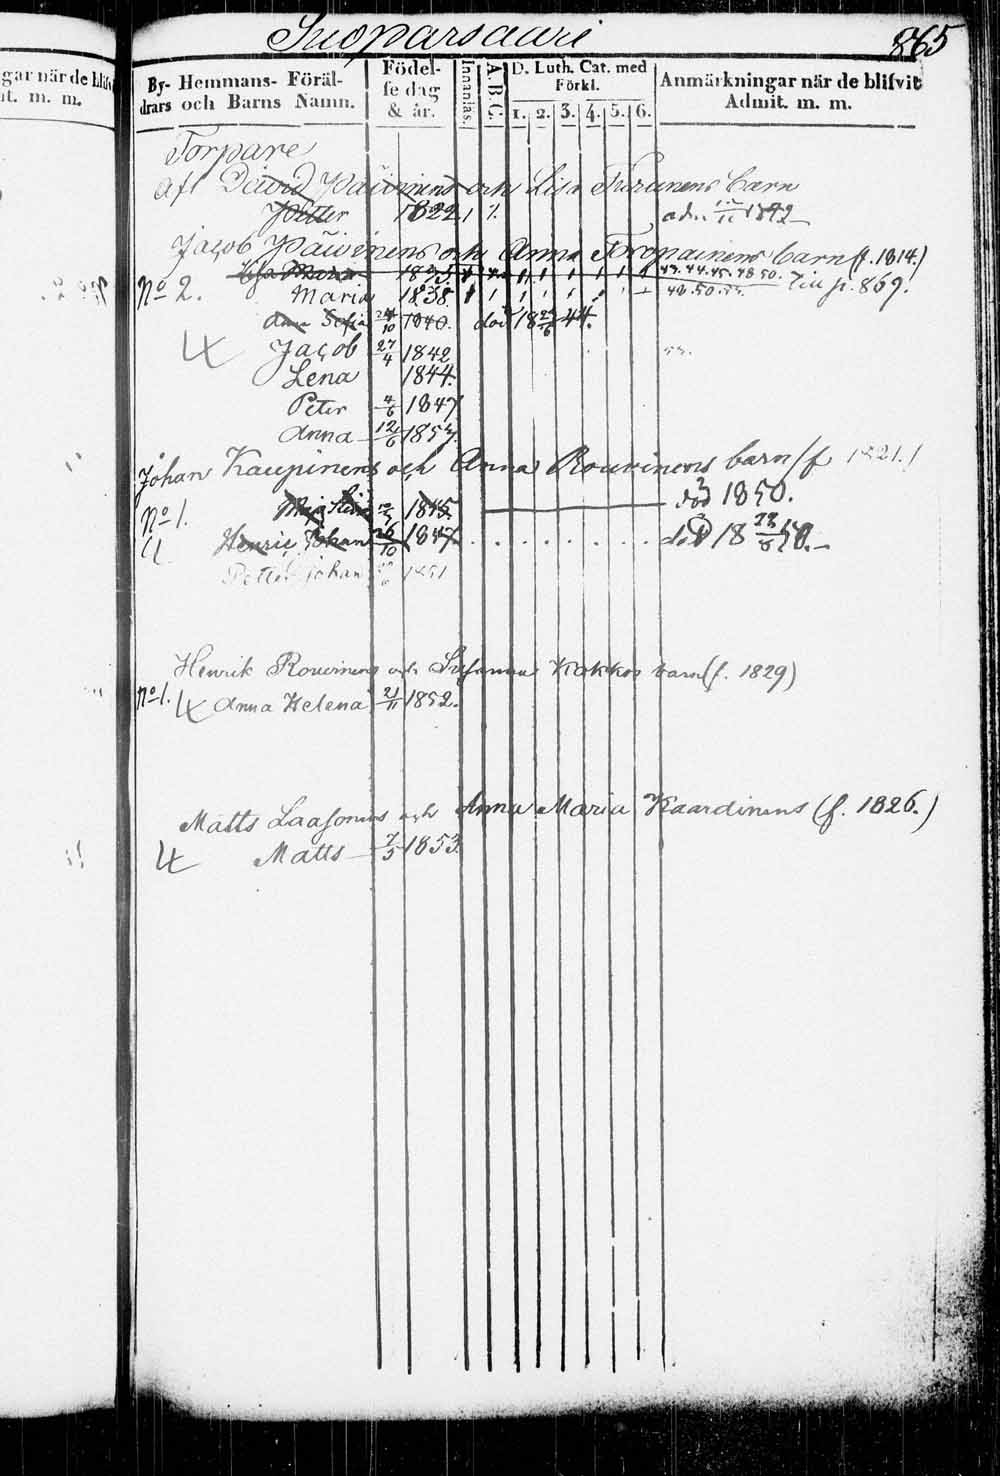 Suoparsaari 865
gar när de blifvit
it. m. m.
By- Hemmans- Föräl-
drars och Barns Namn.
Födel-
se dag
& år.
Innanläs.
A.B.C.
D. Luth. Cat. med
Förkl.
1. 2. 3. 4. 5. 6.
Anmärkningar när de blifvit
Admit. m. m.
Torpare
afl David Päivinens och Lisa Turunens barn
Petter 1822 1842
Jacob Päivinens och Anna Toropainens barn (f. 1814.)
1835. 43. 44. 45. 48. 50. Till p. 869.
No 2. Maria 1838. 48. 50. 53.
Anna Sofia 24/10 1840. död 18 44.
4 Jacob 27/4 1842 53.
Lena 1844.
Peter 4/6 1847
Anna 12/6 1853.
Johan Kaupinens och Anna Rouvinens barn (f 1821.)
No 1. 1845. död 1850.
4 Henric Johan 26/10 1847 död 18 50.
Petter Johan 1851
Henrik Rouvinens och Susanna Kokkos barn (f. 1829)
No 1. 4 Anna Helena 21/11 1852.
Matts Laasonens och Anna Maria Kaardinens (f. 1826.)
4 Matts 7/5 1853.